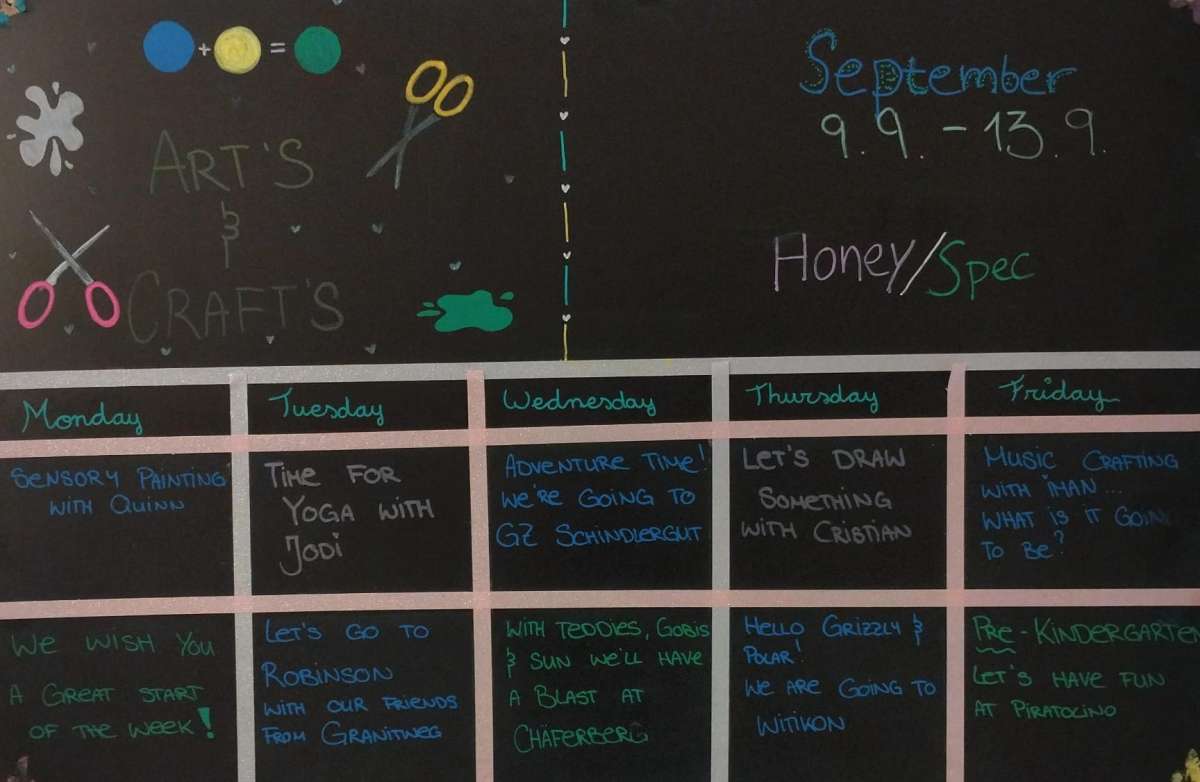 + =
ART'S
&
CRAFT'S
September
9. 9. - 13. 9.
Honey/Spec
Monday
Tuesday
Wednesday
Thursday
Friday
SENSORY PAINTING
WITH QUINN
TIME FOR
YOGA WITH
JODI
ADVENTURE TIME!
WE'RE GOING TO
GZ SCHINDLERGUT
LET'S DRAW
SOMETHING
WITH CRISTIAN
MUSIC CRAFTING
WITH IMAN...
WHAT IS IT GOIN
TO BE?
WE WISH YOU
A GREAT START
OF THE WEEK!
LET'S GO TO
ROBINSON
WITH OUR FRIENDS
FROM GRANITWEG
WITH TEDDIES, GOBIS
& SUN WE'LL HAVE
A BLAST AT
CHÄFERBERG
HELLO GRIZZLY &
POLAR!
WE ARE GOING TO
WITIKON
PRE-KINDERGARTEN
LET'S HAVE FUN
AT PIRATOLINO